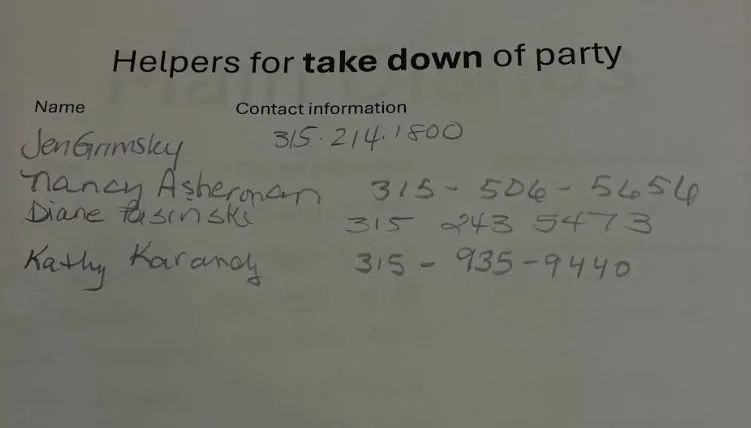 Helpers for take down of party
Name Contact information
Jen Grimsky 315.214.1800
Nancy Asherman 315-506-5656
Diane Pasinski 315 243 5473
Kathy Karandy 315-935-9440